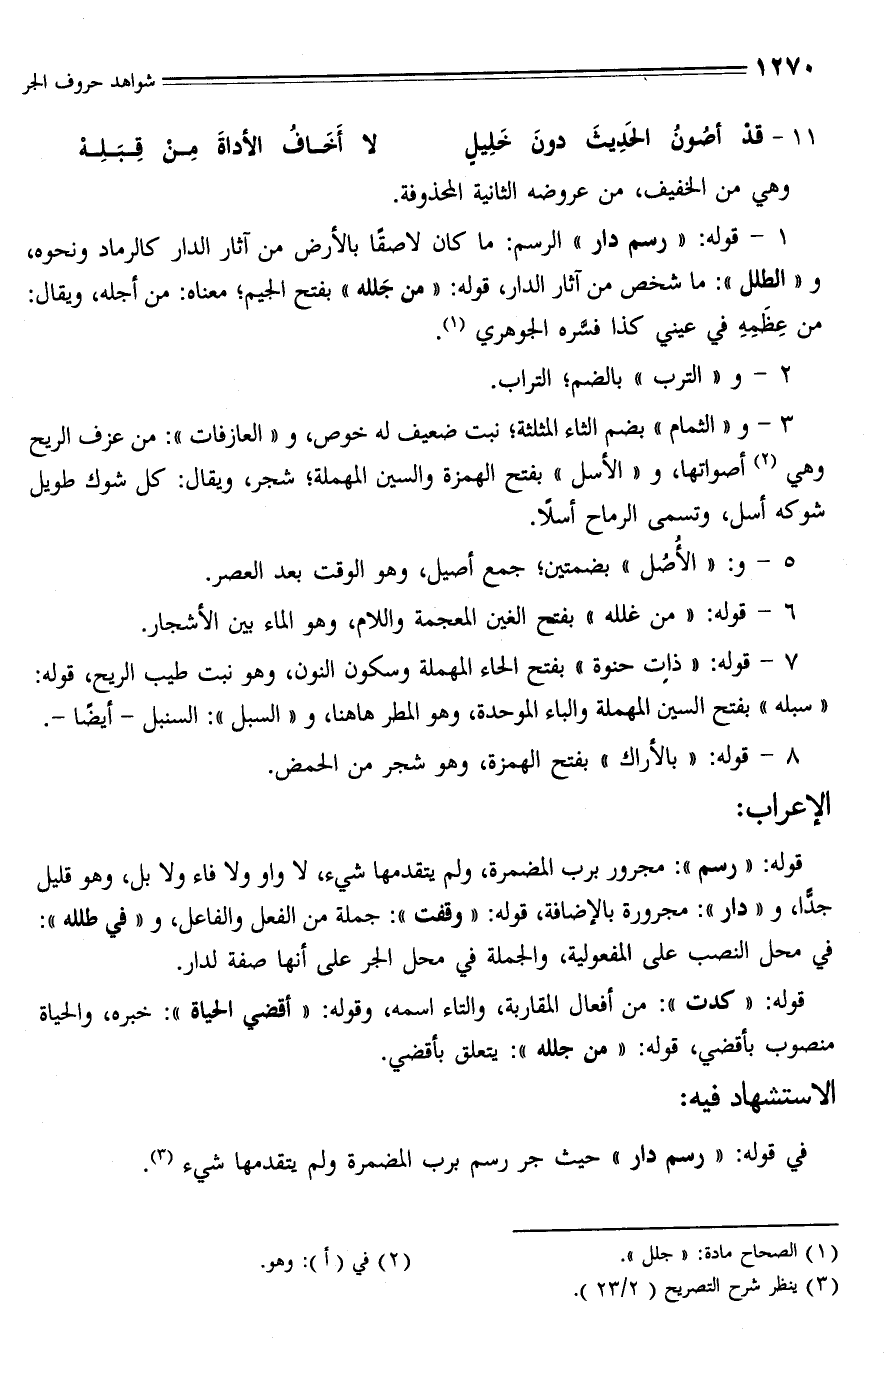 ١٢٧٠ شواهد حروف الجر
١١ - قدْ أصُونُ الحَدِيثَ دونَ خَلِيلٍ لا أَخَـافُ الأداةَ مِـنْ قِـبَـلِـهْ
وهي من الخفيف، من عروضه الثانية المحذوفة.
١ - قوله: « رسم دار » الرسم: ما كان لاصقًا بالأرض من آثار الدار كالرماد ونحوه،
و « الطلل »: ما شخص من آثار الدار، قوله: « من جَلله » بفتح الجيم؛ معناه: من أجله، ويقال:
من عِظَمِهِ في عيني كذا فسَّره الجوهري (١).
٢ - و « الترب » بالضم؛ التراب.
٣ - و « الثمام » بضم الثاء المثلثة؛ نبت ضعيف له خوص، و « العازفات »: من عزف الريح
وهي (٢) أصواتها، و « الأسل » بفتح الهمزة والسين المهملة؛ شجر، ويقال: كل شوك طويل
شوكه أسل، وتسمى الرماح أسلًا.
٥ - و: « الأُصُل » بضمتين؛ جمع أصيل، وهو الوقت بعد العصر.
٦ - قوله: « من غلله » بفتح الغين المعجمة واللام، وهو الماء بين الأشجار.
٧ - قوله: « ذاتِ حنوة » بفتح الحاء المهملة وسكون النون، وهو نبت طيب الريح، قوله:
« سبله » بفتح السين المهملة والباء الموحدة، وهو المطر هاهنا، و « السبل »: السنبل - أيضًا -.
٨ - قوله: « بالأراك » بفتح الهمزة، وهو شجر من الحمض.
الإعراب:
قوله: « رسم »: مجرور برب المضمرة، ولم يتقدمها شيء، لا واو ولا فاء ولا بل، وهو قليل
جدًّا، و « دار »: مجرورة بالإضافة، قوله: « وقفت »: جملة من الفعل والفاعل، و « في طلله »:
في محل النصب على المفعولية، والجملة في محل الجر على أنها صفة لدار.
قوله: « كدت »: من أفعال المقاربة، والتاء اسمه، وقوله: « أقضي الحياة »: خبره، والحياة
منصوب بأقضي، قوله: « من جلله »: يتعلق بأقضي.
الاستشهاد فيه:
في قوله: « رسم دار » حيث جر رسم برب المضمرة ولم يتقدمها شيء (٣).
(١) الصحاح مادة: « جلل ». (٢) في ( أ ): وهو.
(٣) ينظر شرح التصريح ( ٢٣/٢ ).